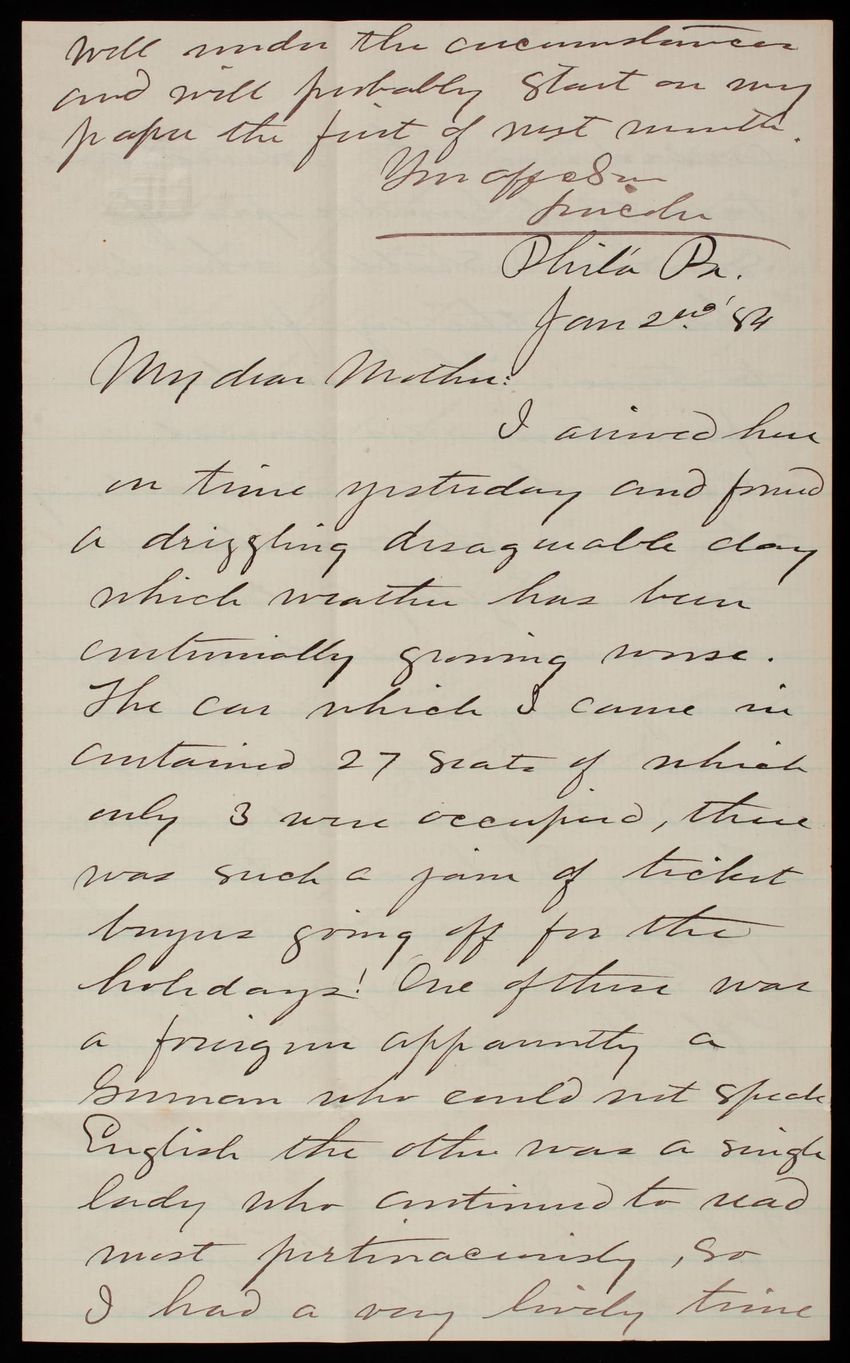 well under the circumstances
and will probably start on my
paper the first of next month.
Your aff. Son
Lincoln
Phila Pa.
Jan 2nd 84
My dear Mother:
I arrived here
on time yesterday and found
a drizzling disagreeable day
which weather has been
continually growing worse.
The car which I came in
contained 27 seats of which
only 3 were occupied, there
was such a jam of ticket
buyers going off for the
holidays! One of these was
a foreigner apparently a
German who could not speak
English the other was a single
lady who continued to read
most pertinaciously, so
I had a very lively time